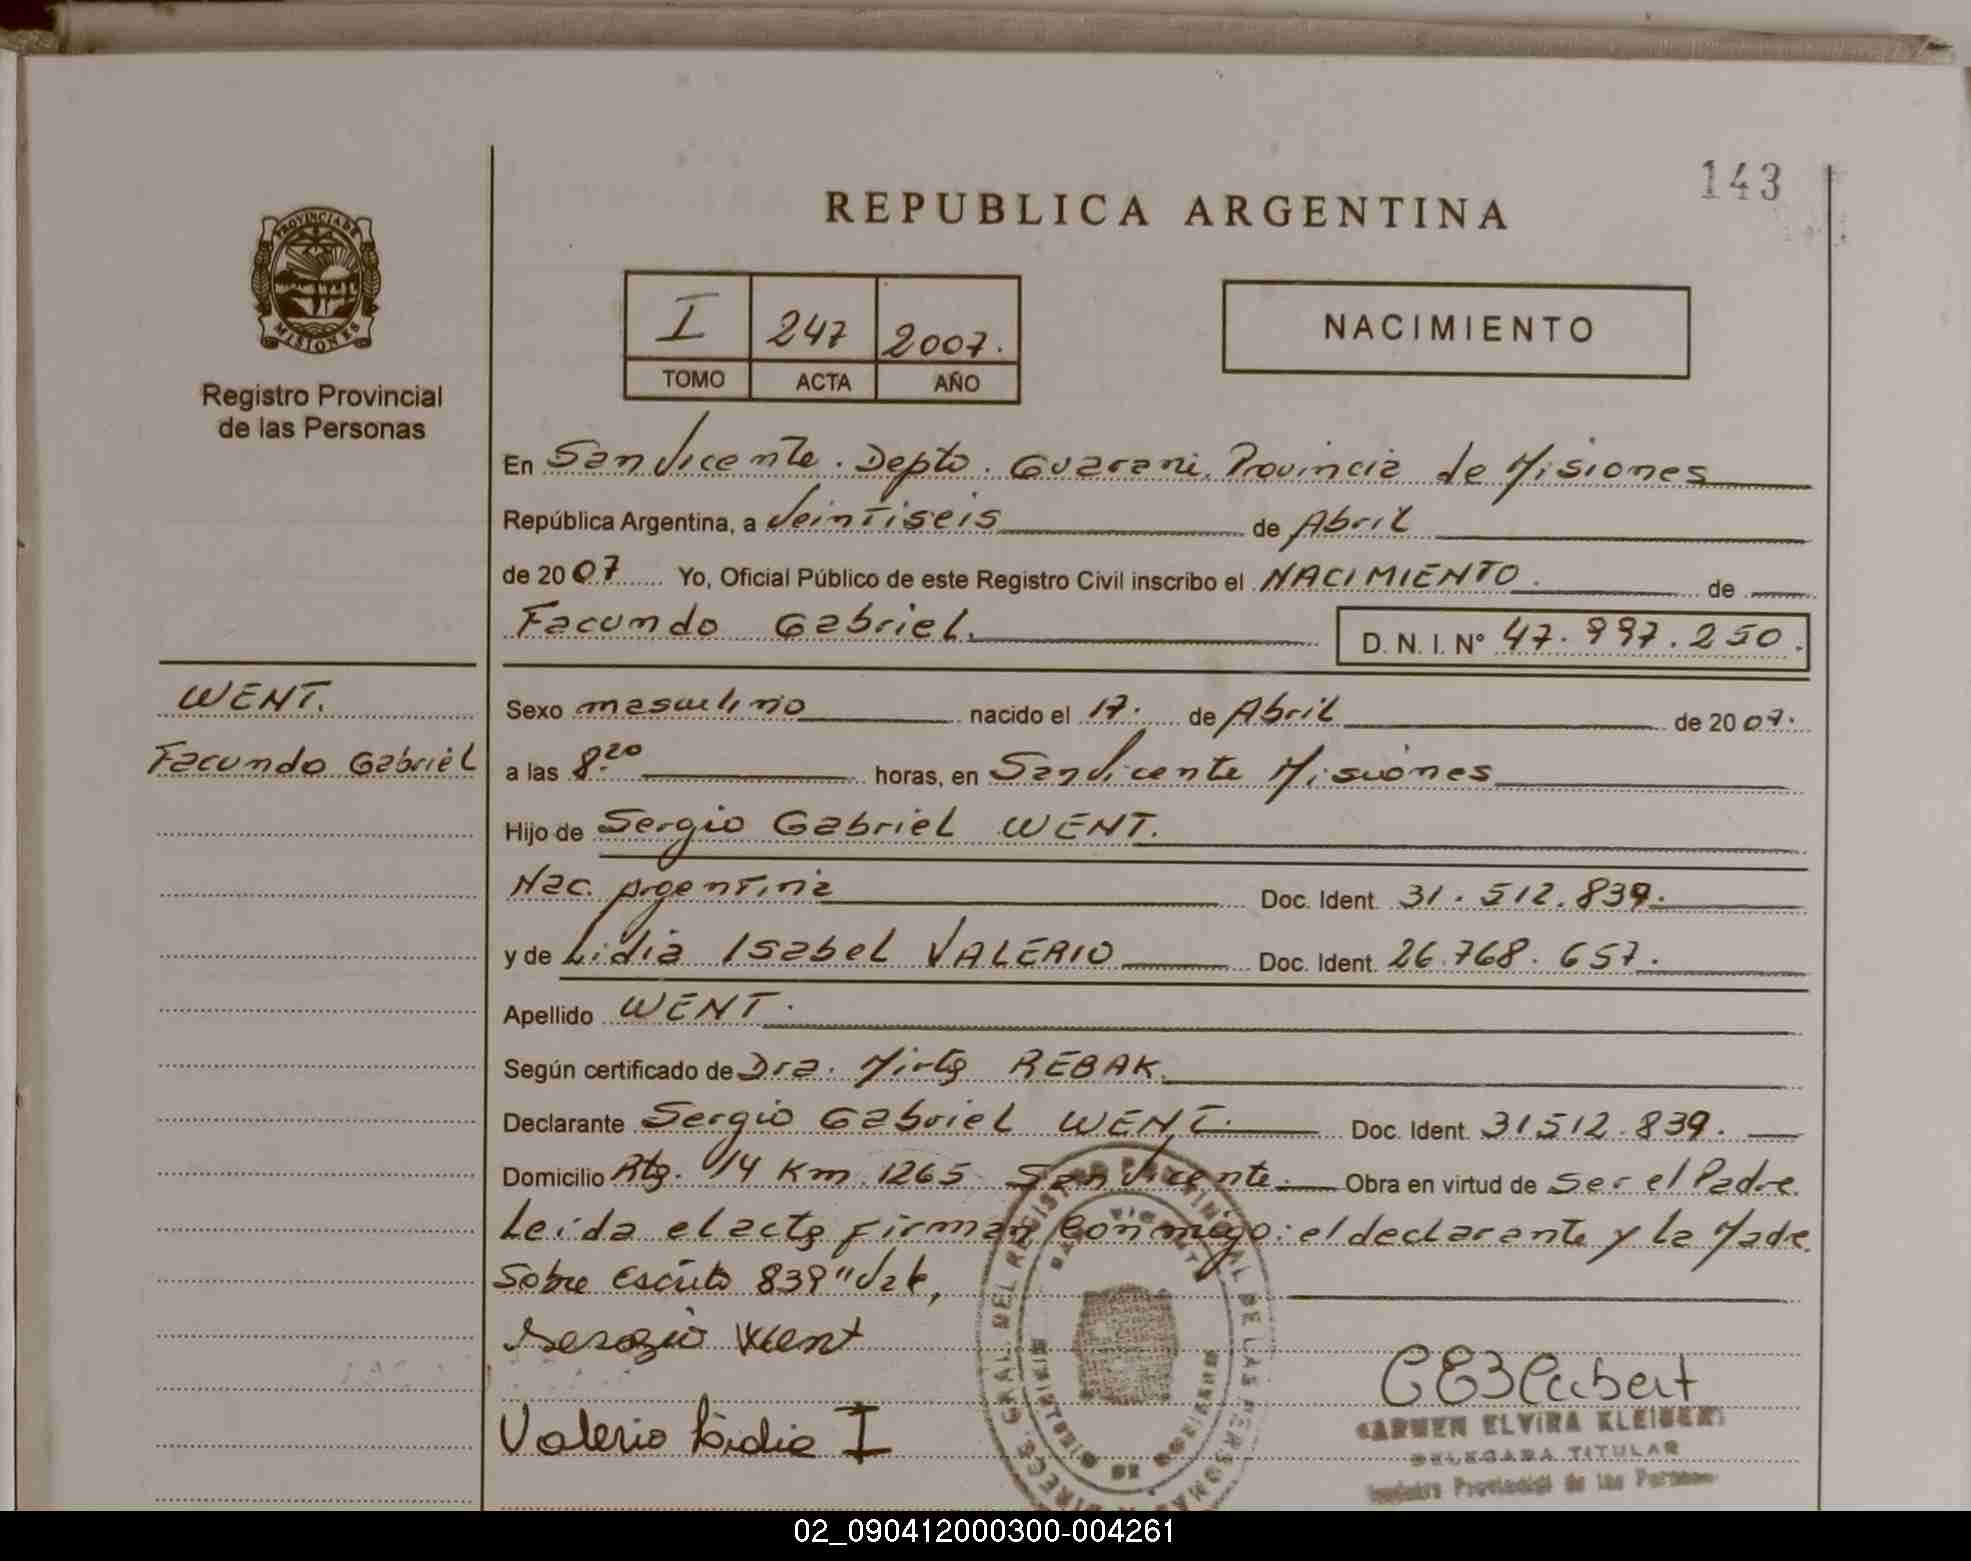 143
REPUBLICA ARGENTINA
PROVINCIA DE
MISIONES
Registro Provincial
de las Personas
I 247 2007.
TOMO ACTA AÑO
NACIMIENTO
En San Vicente. Depto. Guarani, Provincia de Misiones
República Argentina, a Veintiseis de Abril
de 2007 Yo, Oficial Público de este Registro Civil inscribo el NACIMIENTO. de
Facundo Gabriel. D. N. I. Nº 47.997.250.
WENT.
Facundo Gabriel
Sexo masculino nacido el 17. de Abril de 2007.
a las 8.20 horas, en San Vicente Misiones
Hijo de Sergio Gabriel WENT.
Nac. Argentina Doc. Ident. 31.512.839.
y de Lidia Isabel VALERIO Doc. Ident. 26.768.657.
Apellido WENT.
Según certificado de Dra. Mirta REBAK.
Declarante Sergio Gabriel WENT. Doc. Ident. 31512.839.
Domicilio Rta. 14 Km 1265 San Vicente. Obra en virtud de Ser el Padre.
Leida el acta firman Conmigo: el declarante y la Madre.
Sobre Escrito 839" Vale,
Sergio Went
Valerio Lidia I
DIRECC. GRAL. DEL REGISTRO PROVINCIAL DE LAS PERSONAS
SAN VICENTE
MINISTERIO DE GOBIERNO
CARMEN ELVIRA
DELEGADA TITULAR
Registro Provincial de las Personas
02_090412000300-004261